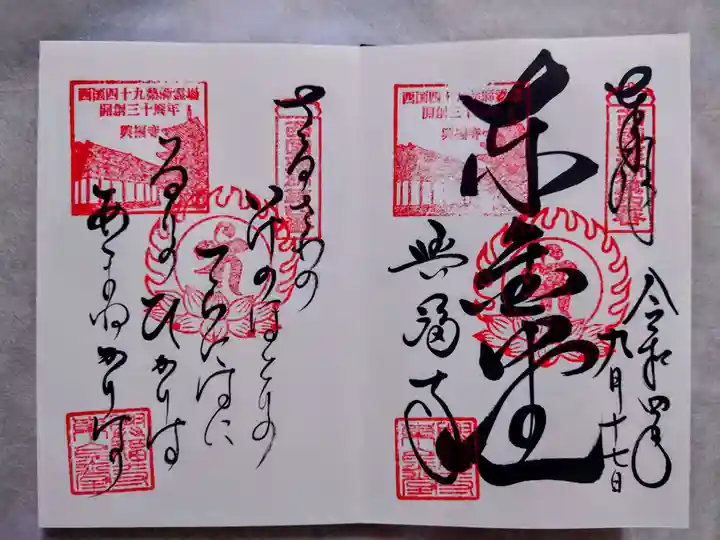 奉拝
令和四年
九月十七日
東金堂
興福寺
西国四十九薬師霊場
開創三十周年
興福寺
さるさわの
池のほとりの
てらに
るりのひかりは
あまねかりけり
西国四十九薬師霊場
開創三十周年
興福寺